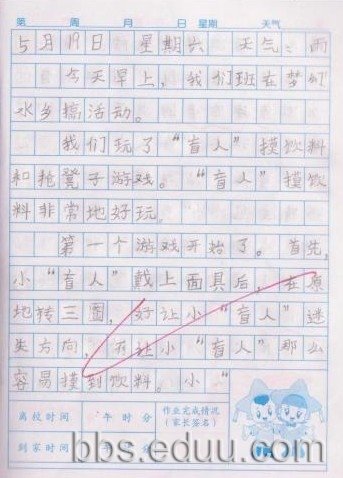 第 周 月 日 星期 天气
5月19日 星期六 天气：雨
今天早上，我们班在梦幻
水乡搞活动。
我们玩了“盲人”摸饮料
和抢凳子游戏。“盲人”摸饮
料非常地好玩。
第一个游戏开始了。首先，
小“盲人”戴上面具后，在原
地转三圈，好让小“盲人”迷
失方向，不让小“盲人”那么
容易摸到饮料。小“
离校时间 午 时 分 作业完成情况
（家长签名）
到家时间 午 时 分
bbs.eduu.com